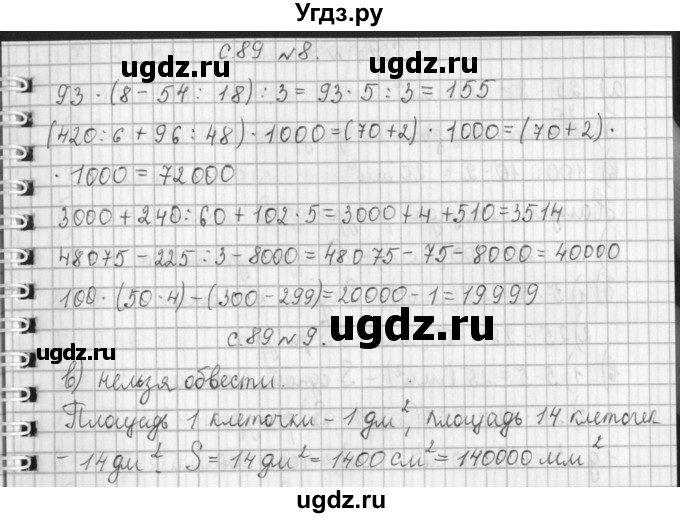 Угдз.ру
с.89 №8.
ugdz.ru ugdz.ru
93 · (8 - 54 : 18) : 3 = 93 · 5 : 3 = 155
(420 : 6 + 96 : 48) · 1000 = (70+2) · 1000 = (70+2) ·
· 1000 = 72000
ugdz.ru
3000 + 240 : 60 + 102 · 5 = 3000 + 4 + 510 = 3514
48075 - 225 : 3 - 8000 = 48075 - 75 - 8000 = 40000
100 · (50 · 4) - (300 - 299) = 20000 - 1 = 19999
ugdz.ru
с.89 №9.
ugdz.ru
в) нельзя обвести.
Площадь 1 клеточки - 1 дм², площадь 14 клеточек
- 14 дм². S = 14 дм² = 1400 см² = 140000 мм²
ugdz.ru
ugdz.ru